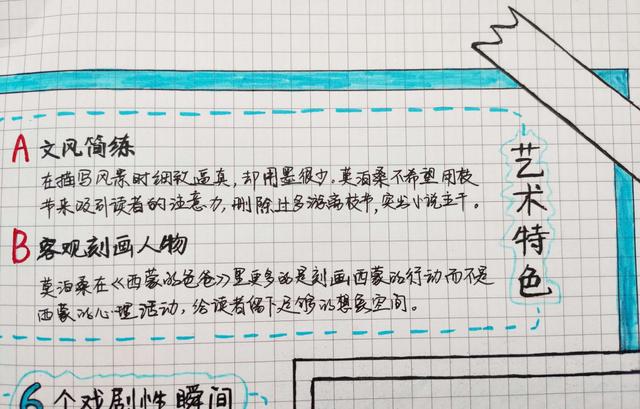 艺术特色
A 文风简练
在描写风景时细致逼真，却用墨很少。莫泊桑不希望用枝
节来吸引读者的注意力，删除许多旁离枝节，突出小说主干。
B 客观刻画人物
莫泊桑在《西蒙的爸爸》里更多的是刻画西蒙的行动而不是
西蒙的心理活动，给读者留下足够的想象空间。
6个戏剧性瞬间